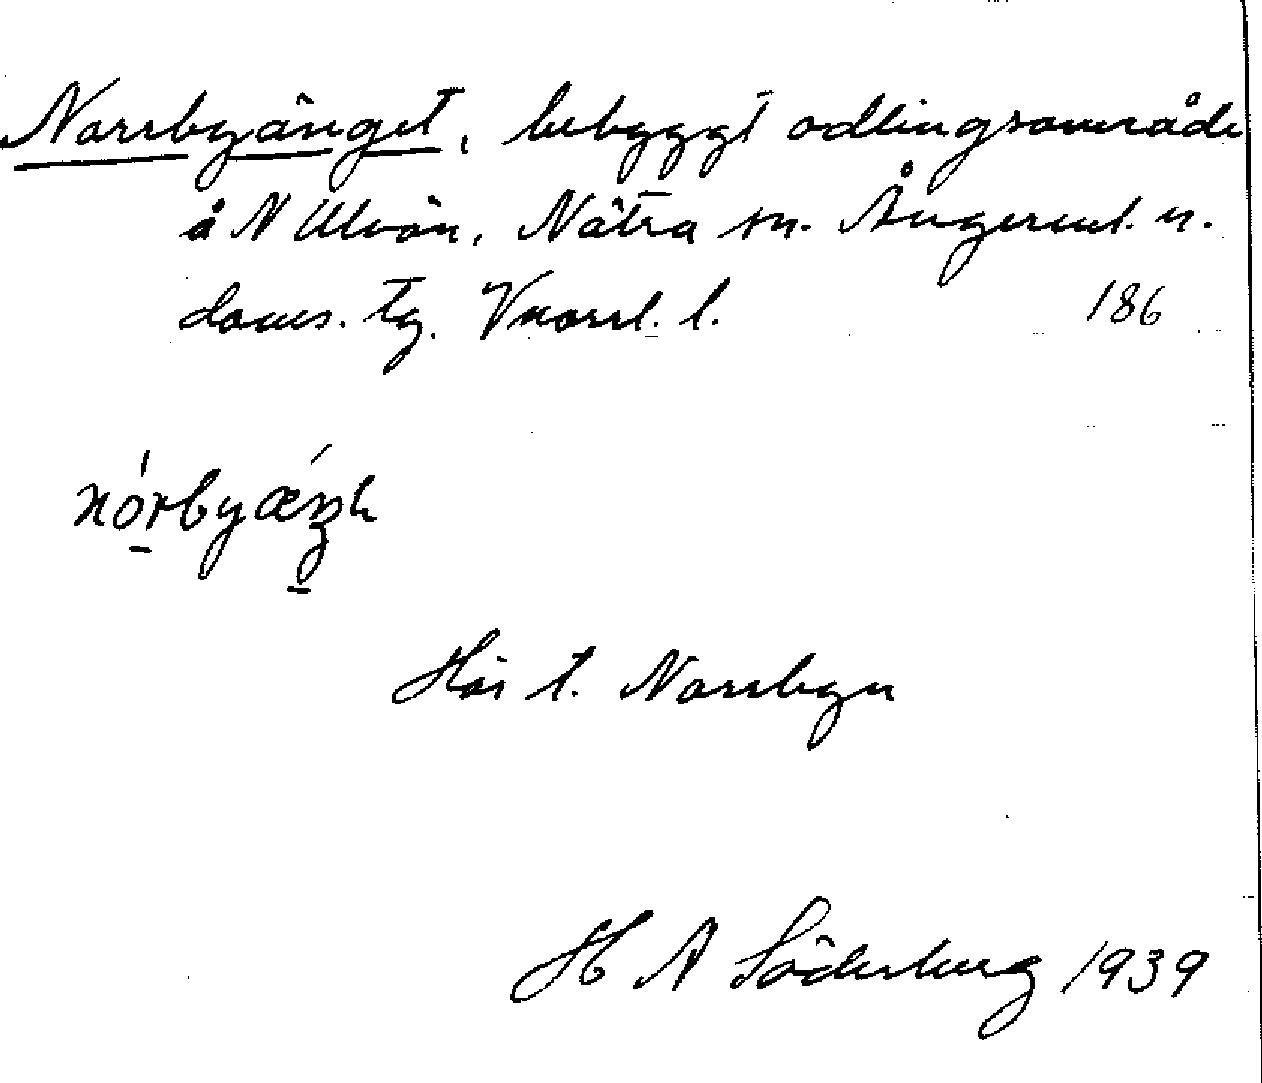 Norrbyänget, bebyggt odlingsområde
å N Ulvön, Nätra sn. Ångerml. n.
doms. tg. Vnorrl. l. 186
Hör t. Norrbyn
H A Söderberg 1939